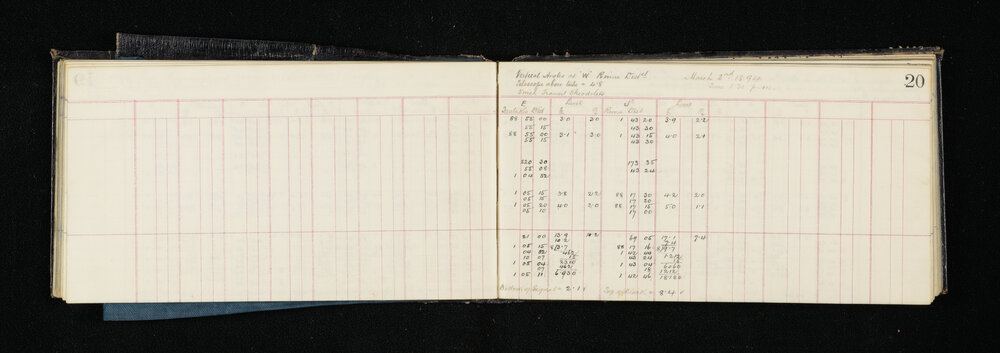 20
Vertical Angles at "W" Dist
March 2nd 1894
Telescope above = 4.8
Time 1.30 p.m.
Small Transit Theodolite
E Level Level
88 55 00 3.0 3.0 1 43 20 3.9 2.2
55 15 43 30
88 55 00 3.1 3.0 1 43 15 4.0 2.1
55 15 43 30
220 30 173 35
55 08 43 24
1 04 52
1 05 15 3.8 2.2 88 17 30 4.2 2.0
05 15 17 20
1 05 20 4.0 2.0 88 17 15 5.0 1.1
05 10 17 00
21 00 13.9 10.2 69 05 17.1 7.4
10.2 7.4
1 05 15 8)3.7 88 17 16 8)9.7
04 52 .462 1 42 44 1.212
10 07 15 43 24 15
1 05 04 2310 1 43 04 6060
07 462 18 1212
1 05 11 6.930 1 42 46 18.180
Bottom of Signal = 2.1
Top of = 8.4